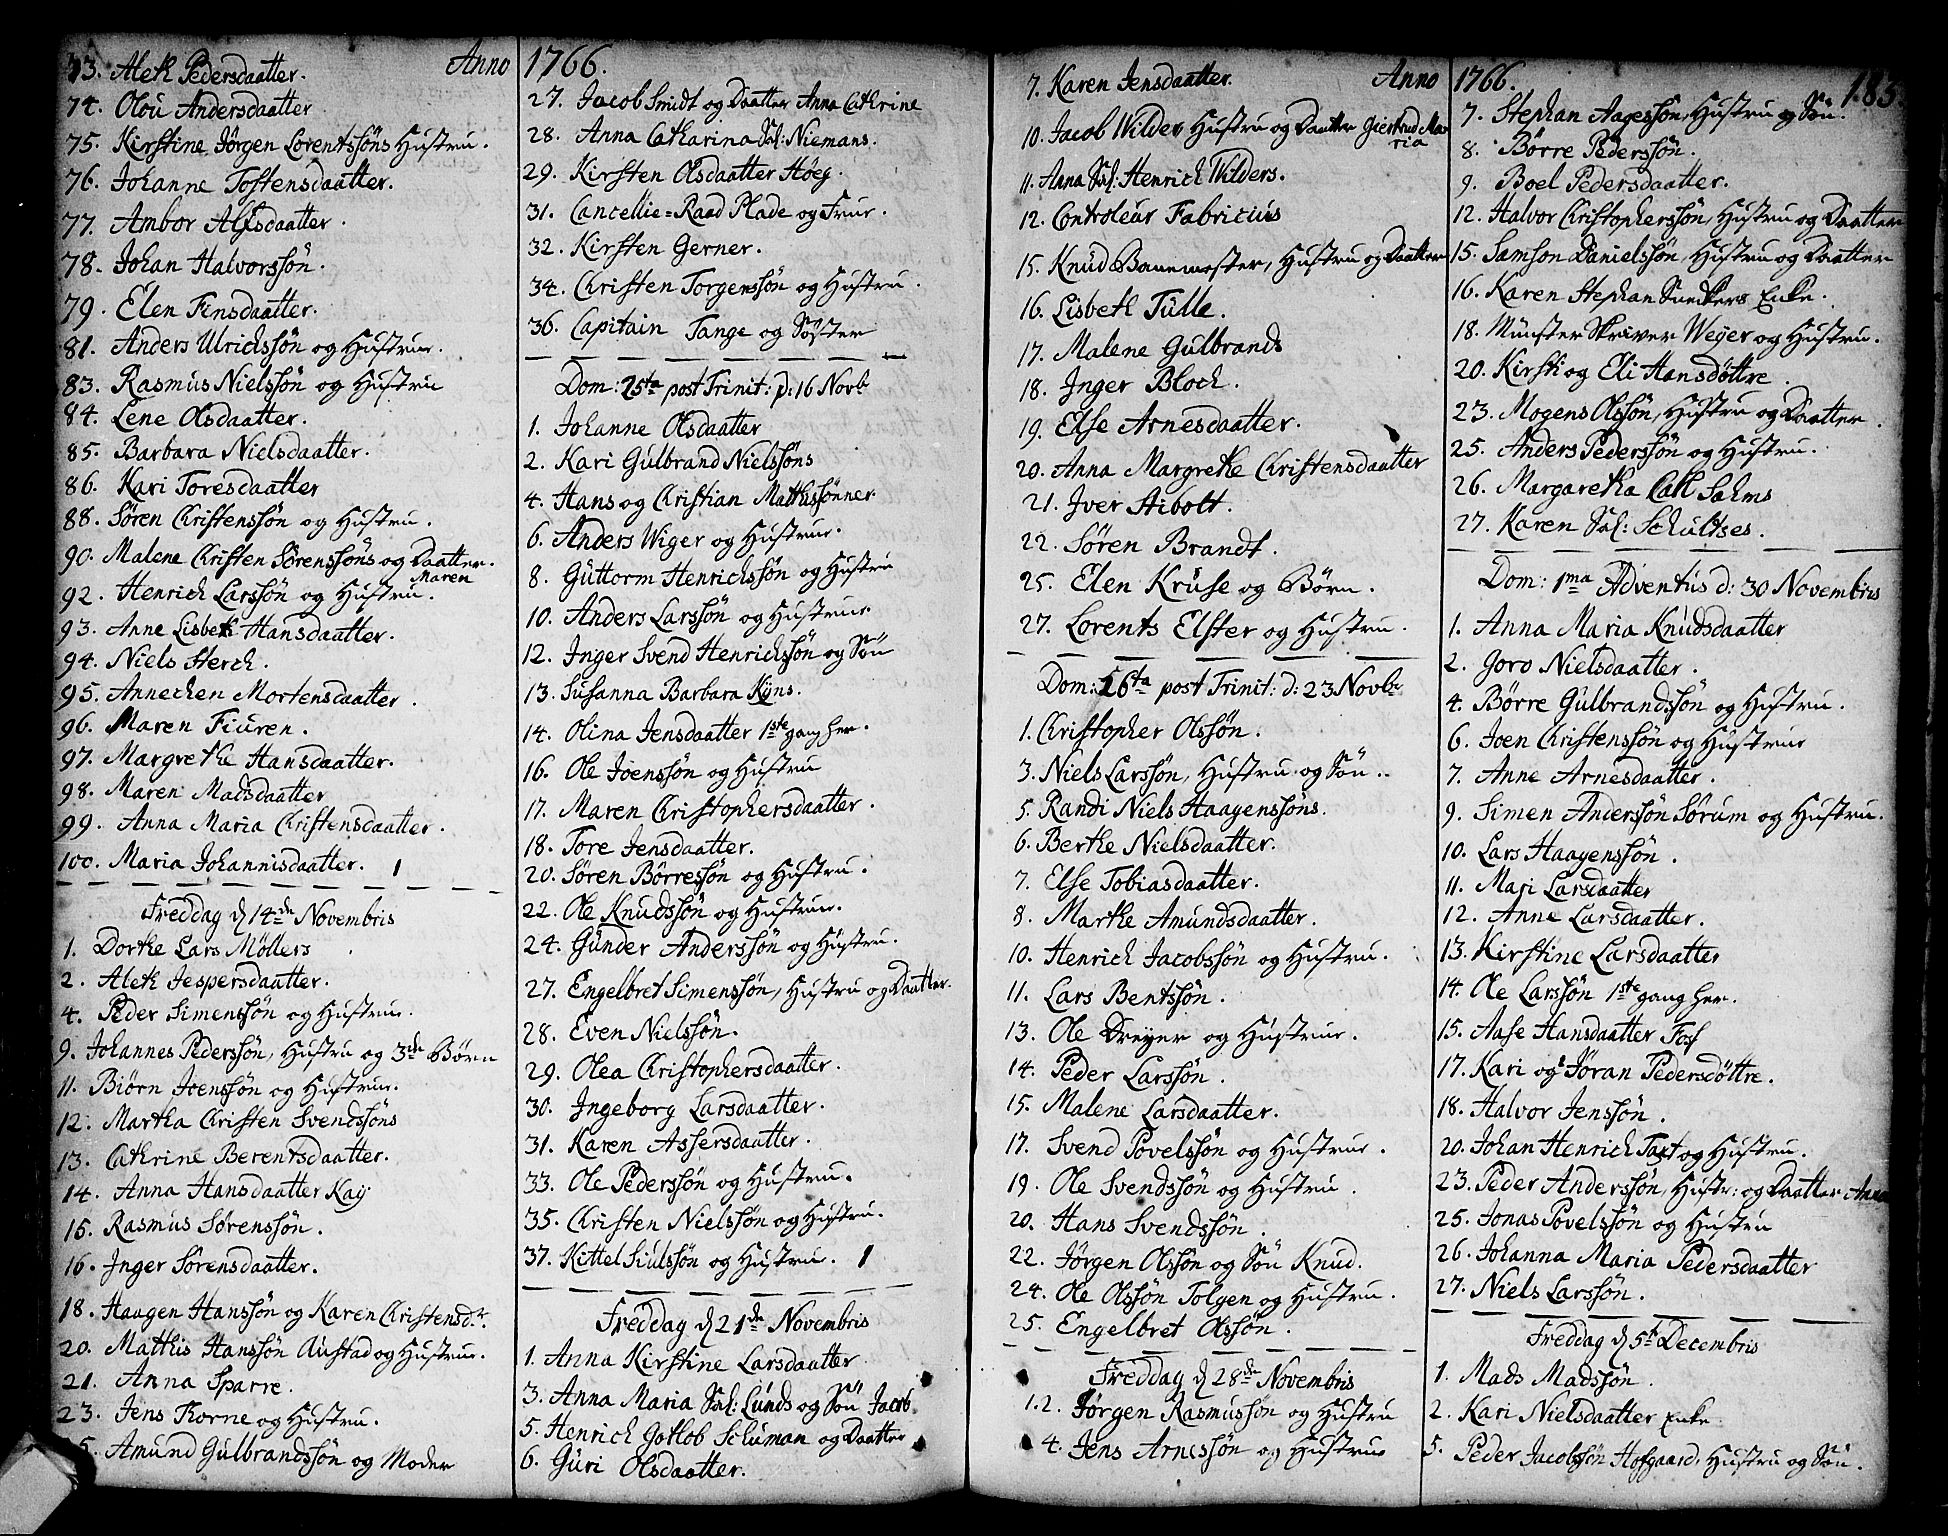 Anno 1766.
73. Aleth Pedersdaatter.
74. Olou Andersdaatter
75. Kirstine Jörgen Lorentssöns Hustru.
76. Johanne Tostensdaatter.
77. Ambor Alfsdaatter.
78. Johan Halvorssön.
79. Elen Finsdaatter.
81. Anders Ulrichssön og Hustrue.
83. Rasmus Nielssön og Hustru
84. Lene Olsdaatter.
85. Barbara Nielsdaatter.
86. Kari Toresdaatter
88. Sören Christenssön og Hustru.
90. Malene Christen Sörenssöns og Daatter. Maren
92. Henrich Larssön og Hustru.
93. Anne Lisbeth Hansdaatter.
94. Niels Sterch.
95. Annechen Mortensdaatter.
96. Maren Fiuren.
97. Margrethe Hansdaatter.
98. Maren Madsdaatter
99. Anna Maria Christensdaatter.
100. Maria Johannisdaatter. 1
Freddag d 14de Novembris
1. Dorthe Lars Möllers
2. Aleth Jespersdaatter.
4. Peder Simenssön og Hustrue.
9. Johannes Pederssön, Hustru og 3de Börn
11. Biörn Joenssön og Hustrue.
12. Martha Christen Svendssöns
13. Cathrine Berentsdaatter.
14. Anna Hansdaatter Kaÿ
15. Rasmus Sörenssön.
16. Inger Sörensdaatter.
18. Haagen Hanssön og Karen Christensd:r.
20. Mathis Hanssön Austad og Hustrue.
21. Anna Sparre.
23. Jens Thorne og Hustru.
25. Amund Gulbrandssön og Moder
27. Jacob Smidt og Daatter Anna Cathrine
28. Anna Catharina Sal: Niemans.
29. Kirsten Olsdaatter Höeg.
31. Cancellie=Raad Plade og Frue.
32. Kirsten Gerner.
34. Christen Torgenssön og Hustru.
36. Capitain Tange og Söster
Dom: 25ta post Trinit: d: 16 Novb
1. Johanne Olsdaatter
2. Kari Gulbrand Nielssöns
4. Hans og Christian Mathissönner.
6. Anders Wiger og Hustrue.
8. Guttorm Henrichssön og Hustru
10. Anders Larssön og Hustrue
12. Inger Svend Henrichssön og Sön
13. Susanna Barbara Kÿns.
14. Olina Jensdaatter 1ste gang her.
16. Ole Joenssön og Hustru
17. Maren Christophersdaatter.
18. Tore Jensdaatter.
20. Sören Börressön og Hustru.
22. Ole Knudssön og Hustrue.
24. Gunder Anderssön og Hustru.
27. Engelbret Simenssön, Hustru og Daatter.
28. Even Nielssön.
29. Olea Christophersdaatter.
30. Ingeborg Larsdaatter.
31. Karen Assersdaatter.
33. Ole Pederssön og Hustru.
35. Christen Nielssön og Hustru.
37. Kittel Siulssön og Hustru. 1
Freddag d 21de Novembris
1. Anna Kirstine Larsdaatter
3. Anna Maria Sal: Lunds og Sön Jacob.
5. Henrich Gottob Schuman og Daatter
6. Guri Olsdaatter.
Anno 1766.
185.
7. Karen Jensdaatter.
10. Jacob Wilder Hustru og Daatter Giertrud Maria
11. Anna Sal: Henrich Wilders.
12. Controleur Fabricius
15. Knud Banemester, Hustru og Daatter
16. Lisbeth Tulle.
17. Malene Gulbrands
18. Inger Bloch.
19. Else Arnesdaatter.
20. Anna Margrethe Christensdaatter
21. Iver Stibolt.
22. Sören Brandt.
25. Elen Kruse og Börn.
27. Lorents Elster og Hustru.
Dom: 26ta post Trinit: d: 23 Novbr
1. Christopher Olssön.
3. Niels Larssön, Hustru og Sön.
5. Randi Niels Haagenssöns.
6. Berthe Nielsdaatter.
7. Else Tobiasdaatter.
8. Marthe Amundsdaatter.
10. Henrich Jacobssön og Hustru.
11. Lars Bentssön.
13. Ole Dreyer og Hustrue.
14. Peder Larssön.
15. Malene Larsdaatter.
17. Svend Povelssön og Hustrue.
19. Ole Svendssön og Hustru.
20. Hans Svendssön.
22. Jörgen Olssön og Sön Knud.
24. Ole Olssön Tolgen og Hustru.
25. Engelbret Olssön.
Freddag d 28de Novembris
1.2. Jörgen Rasmussön og Hustru
4. Jens Arnessön og Hustrue
7. Stephan Aagessön, Hustru og Sön.
8. Börre Pederssön.
9. Boel Pedersdaatter.
12. Halvor Christopherssön, Hustru og Daatter
15. Samson Danielssön, Hustru og Daatter
16. Karen Stephan Snedkers Enke.
18. Münster Skriver Weyer og Hustru.
20. Kirsti og Eli Hansdöttre.
23. Mogens Olssön, Hustru og Daatter.
25. Anders Pederssön og Hustru.
26. Margaretha Call Sahms
27. Karen Sal: Schultses.
Dom: 1ma Adventus d: 30 Novembris
1. Anna Maria Knudsdaatter
2. Goro Nielsdaatter.
4. Börre Gulbrandssön og Hustru.
6. Joen Christenssön og Hustrue
7. Anne Arnesdaatter.
9. Simen Anderssön Sörum og Hustru.
10. Lars Haagenssön.
11. Mari Larsdaatter
12. Anne Larsdaatter.
13. Kirstine Larsdaatter
14. Ole Larssön 1ste gang her.
15. Aase Hansdaatter Fos
17. Kari og Jöran Pedersdöttre.
18. Halvor Jenssön.
20. Johan Henrich Taxt og Hustru.
23. Peder Anderssön, Hustr: og Daatter Anna
25. Jonas Povelssön og Hustru
26. Johanna Maria Pedersdaatter
27. Niels Larssön.
Freddag d 5t Decembris
1. Mads Madssön.
2. Kari Nielsdaatter Enke
5. Peder Jacobssön Hofgaard, Hustru og Sön.